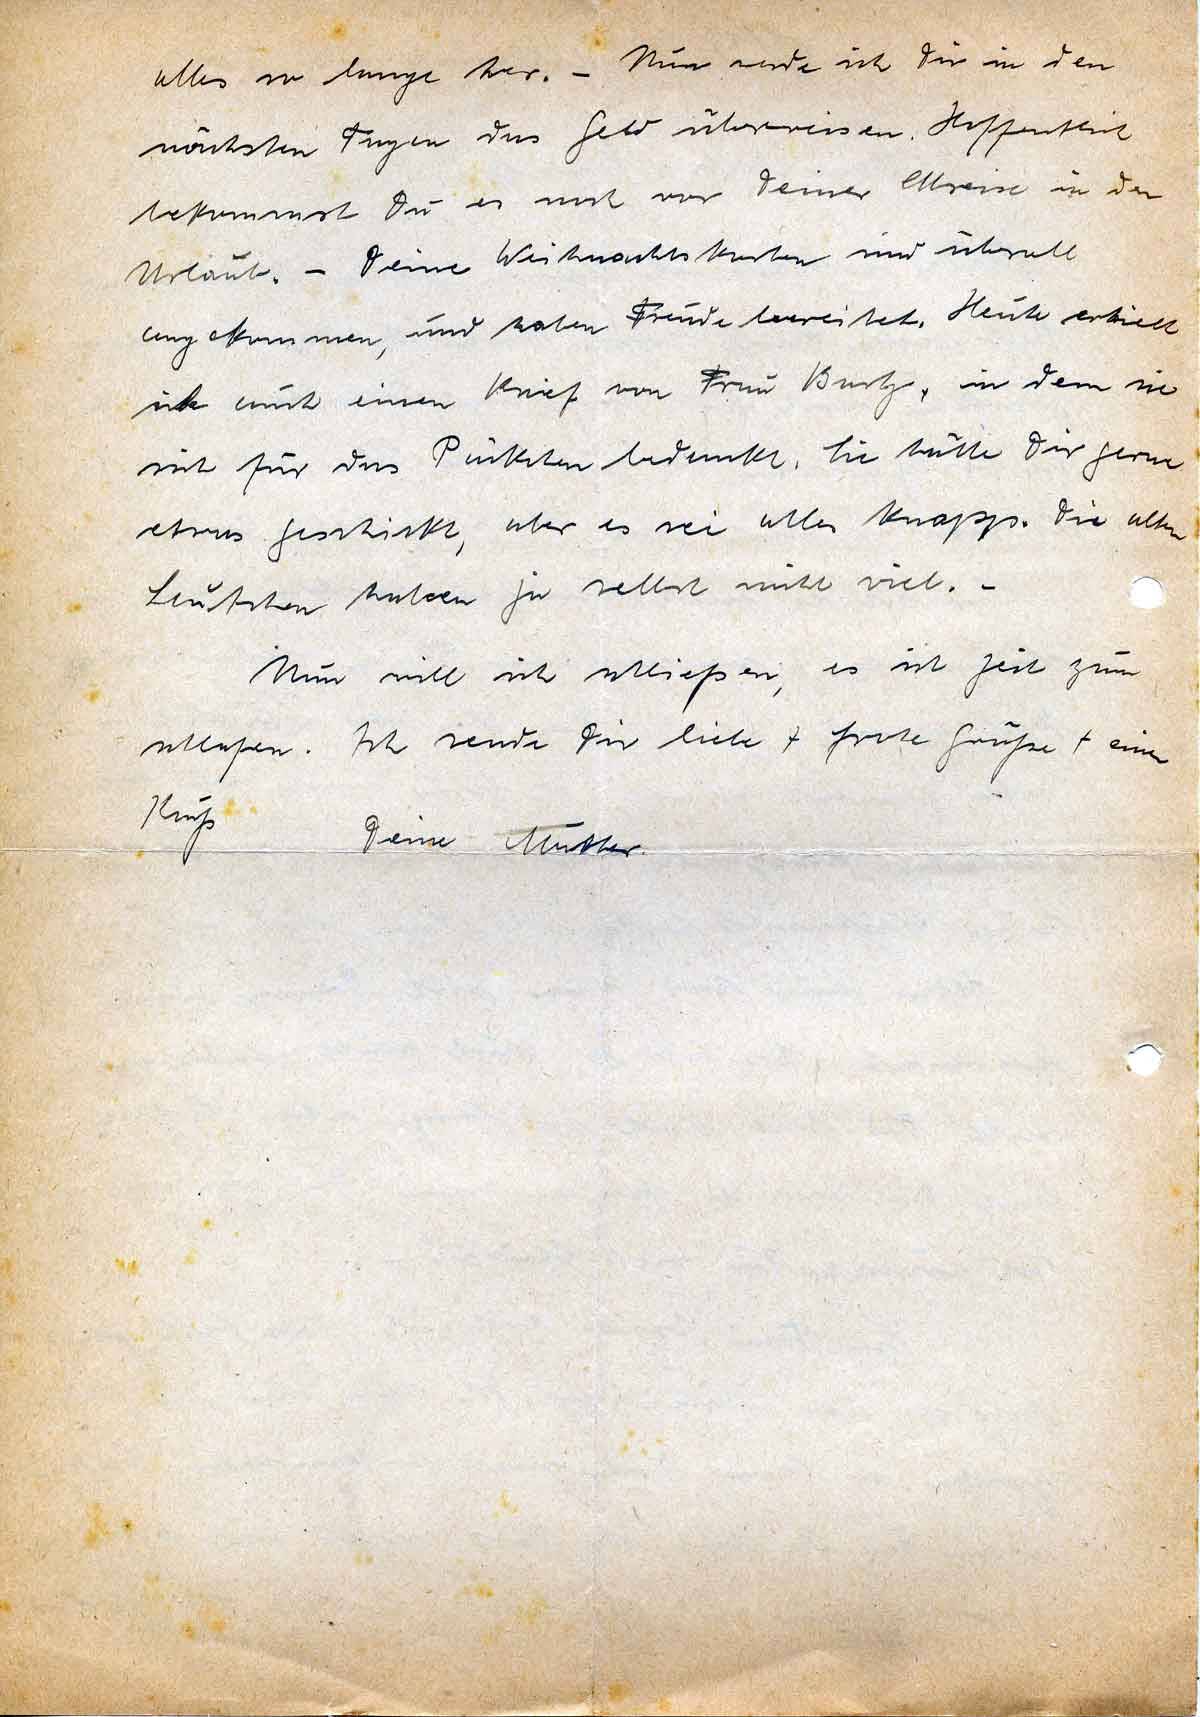 alles so lange her. – Nun werde ich Dir in den
nächsten Tagen das Geld überweisen. Hoffentlich
bekommst Du es noch vor Deiner Abreise in den
Urlaub. – Deine Weihnachtskarten sind überall
angekommen, und haben Freude bereitet. Heute erhielt
ich auch einen Brief von Frau, in dem sie
sich für das Päckchen bedankt. Sie hätte Dir gerne
etwas geschickt, aber es sei alles knapp. Die alten
Leutchen haben ja selbst nicht viel. –
Nun will ich schließen, es ist Zeit zum
schlafen. Ich sende Dir liebe + Grüße + einen
Kuß Deine Mutter.